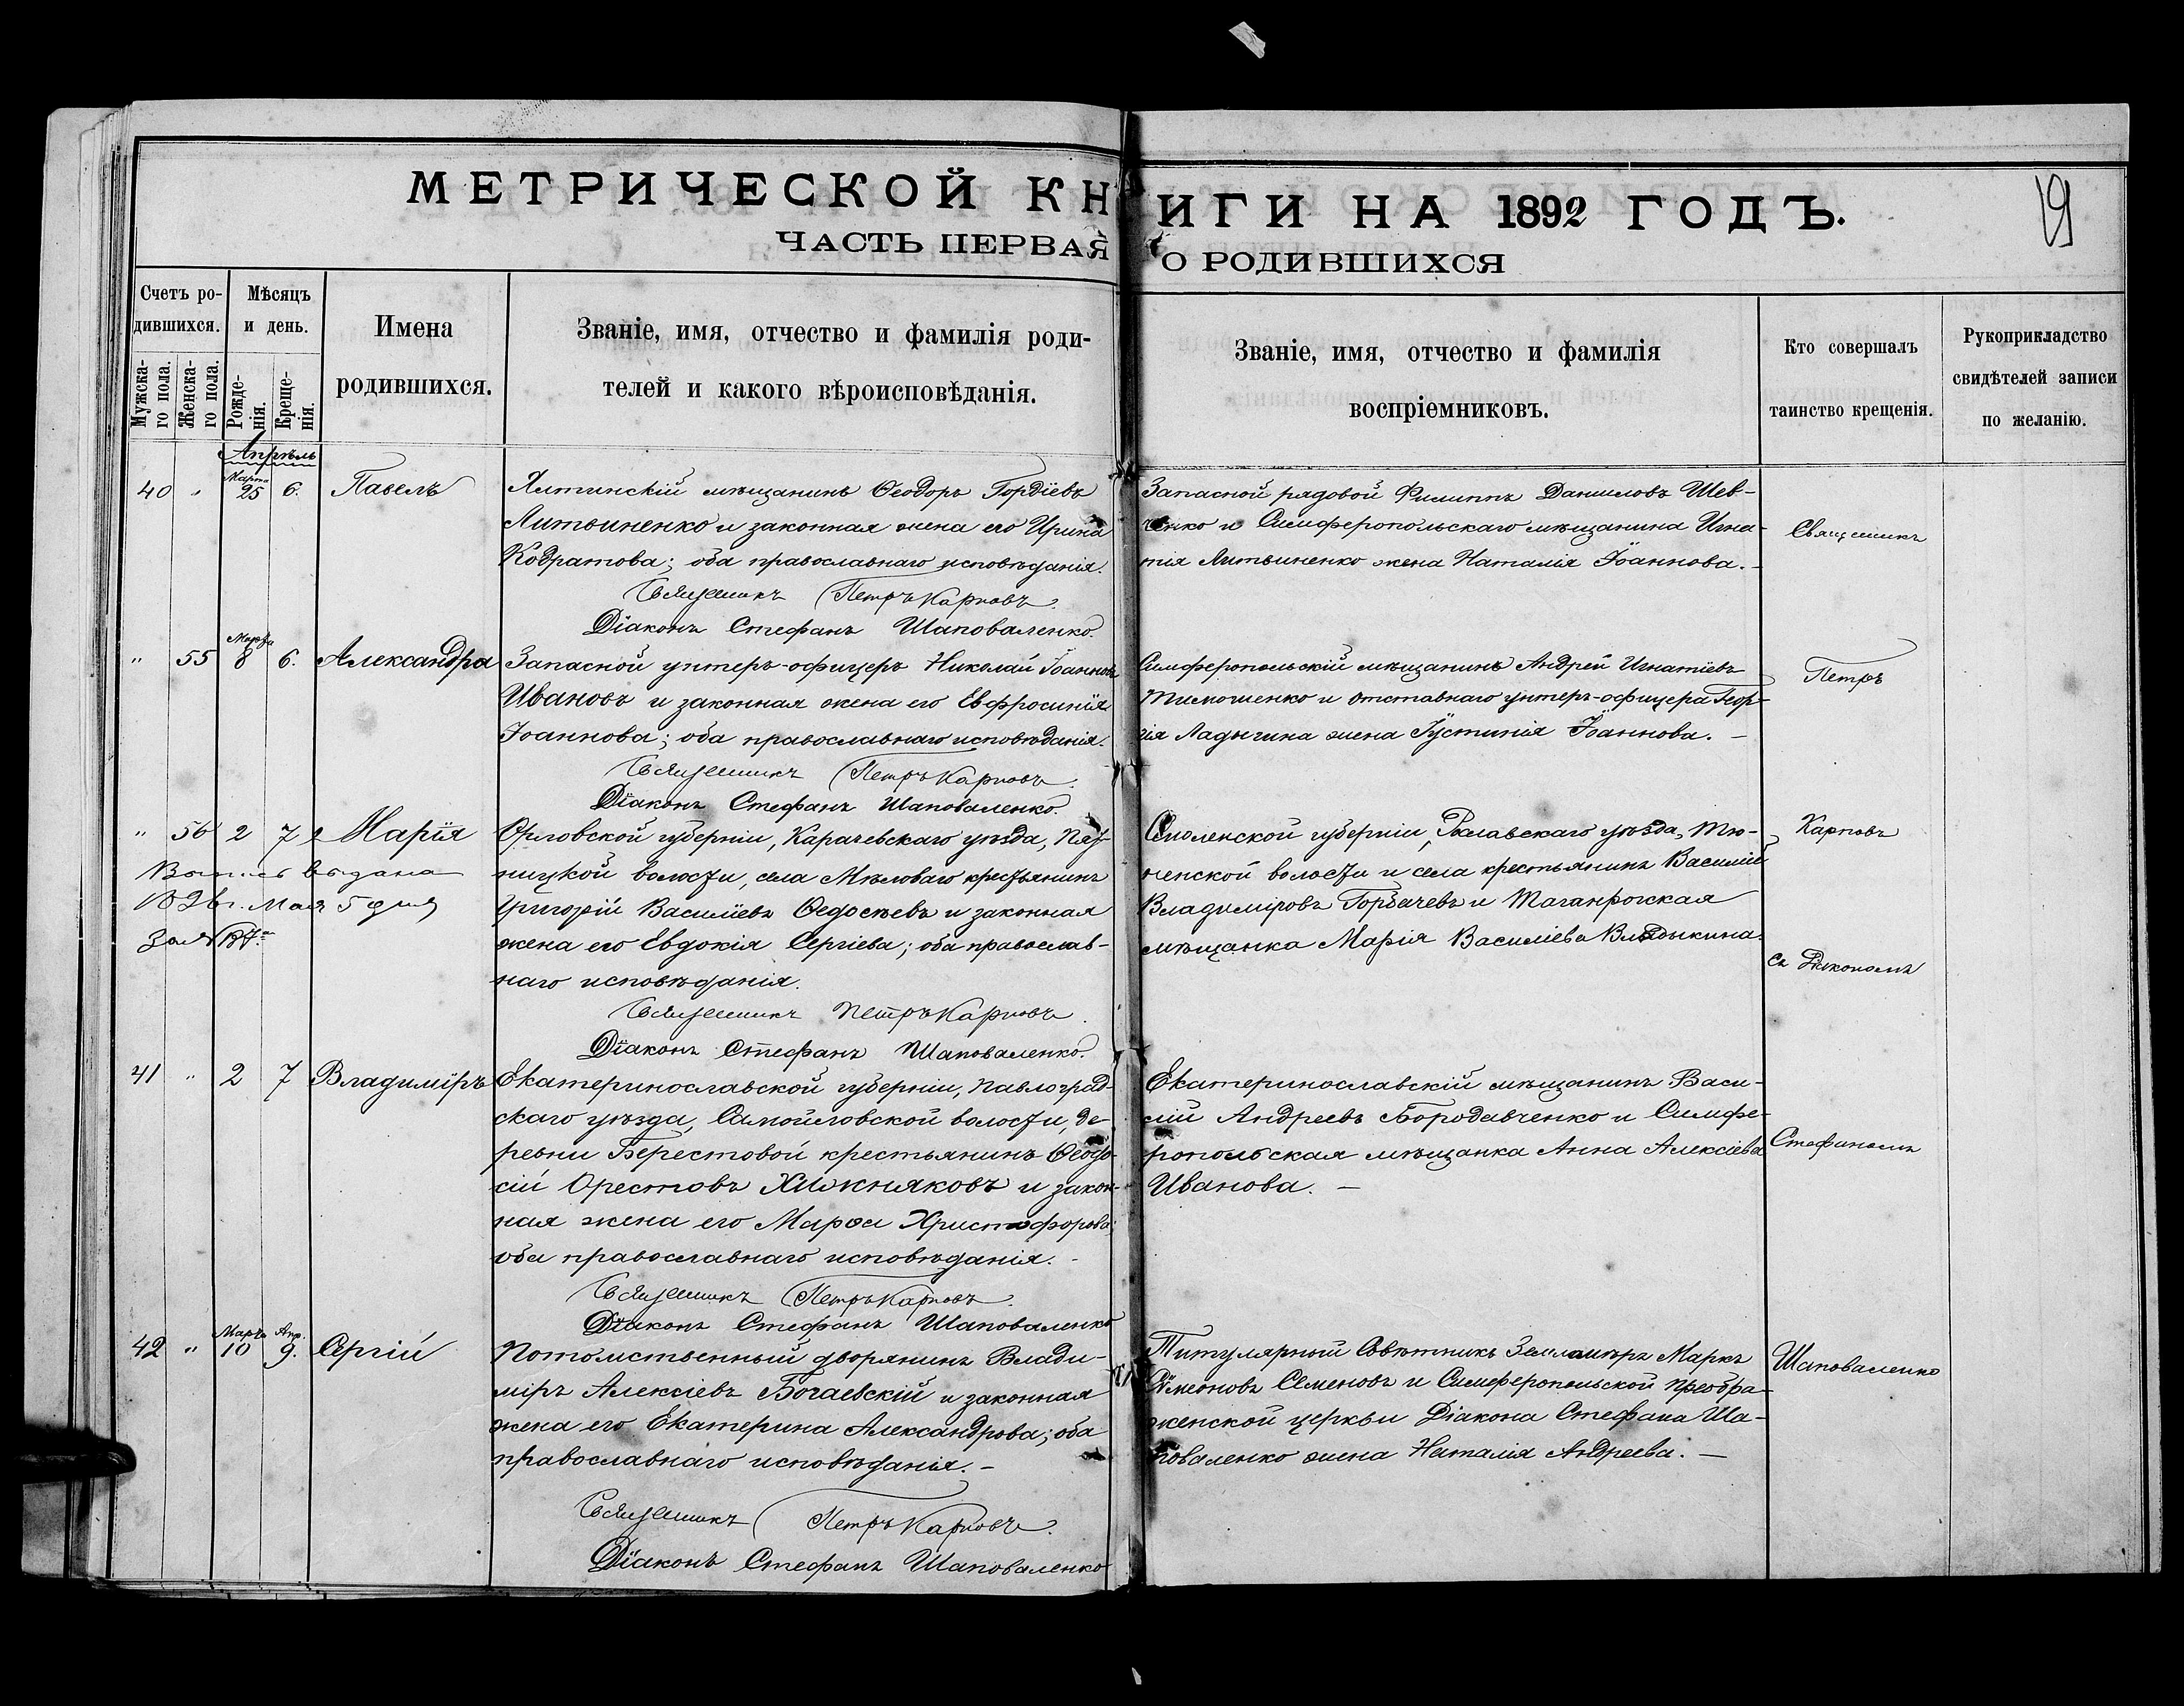 МЕТРИЧЕСКОЙ КНИГИ НА 1892 ГОДЪ.
19
ЧАСТЬ ПЕРВАЯ О РОДИВШИХСЯ
Счетъ ро-
дившихся.
Мужска-
го пола.
Женска-
го пола.
Мѣсяцъ
и день.
Рожде-
нія.
Креще-
нія.
Имена
родившихся.
Званіе, имя, отчество и фамилія роди-
телей и какого вѣроисповѣданія.
Званіе, имя, отчество и фамилія
воспріемниковъ.
Кто совершалъ
таинство крещенія.
Рукоприкладство
свидѣтелей записи
по желанію.
Апрѣль
40 " Марта 25 6. Павелъ
Ялтинскій мѣщанинъ Ѳеодоръ Гордіевъ
Литвиненко и законная жена его Ирина
Кодратова; оба православнаго исповѣданія.
Священникъ Петръ Карповъ.
Діаконъ Стефанъ Шаповаленко.
Запасной рядовой Филиппъ Даниловъ Шев-
ченко и Симферопольскаго мѣщанина Игна-
тія Литвиненко жена Наталія Іоаннова. -
" 55 Марта 8 6. Александра
Запасной унтеръ-офицеръ Николай Іоанновъ
Ивановъ и законная жена его Евфросинія
Іоаннова; оба православнаго исповѣданія.
Священникъ Петръ Карповъ.
Діаконъ Стефанъ Шаповаленко.
Симферопольскій мѣщанинъ Андрей Игнатіевъ
Тимошенко и отставнаго унтеръ-офицера Геор-
гія Ладыгина жена Іустинія Іоаннова. -
" 56 2 7 Марія
Выпись выдана
1892 г. Мая 5 дня
за №
Орловской губерніи, Карачевскаго уѣзда, Пят-
ницкой волости, села Мѣловаго крестьянинъ
Григорій Василіевъ Ѳедосѣевъ и законная
жена его Евдокія Сергіева; оба православ-
наго исповѣданія.
Священникъ Петръ Карповъ.
Діаконъ Стефанъ Шаповаленко.
Смоленской губерніи, Рославскаго уѣзда, Тю-
ненской волости и села крестьянинъ Василій
Владиміровъ Горбачевъ и Таганрогская
мѣщанка Марія Василіева Владыкина.
41 " 2 7 Владиміръ
Екатеринославской губерніи, Павлоград-
скаго уѣзда, Самойловской волости, де-
ревни Берестовой крестьянинъ Ѳеодо-
сій Орестовъ Хижняковъ и закон-
ная жена его Марѳа Христофорова;
оба православнаго исповѣданія. -
Священникъ Петръ Карповъ.
Діаконъ Стефанъ Шаповаленко
Екатеринославскій мѣщанинъ Васи-
лій Андреевъ Бородавченко и Симфе-
ропольская мѣщанка Анна Алексіева
Иванова. -
42 " Марта 10 Апр. 9. Сергій
Потомственный дворянинъ Влади-
міръ Алексіевъ Богаевскій и законная
жена его Екатерина Александрова; оба
православнаго исповѣданія. -
Священникъ Петръ Карповъ.
Діаконъ Стефанъ Шаповаленко
Титулярный Совѣтникъ Землемѣръ Маркъ
Сѵмеоновъ Семеновъ и Симферопольской Преобра-
женской церкви Діакона Стефана Ша-
поваленко жена Наталія Андреева. -
Священникъ
Петръ
Карповъ
съ Діакономъ
Стефаномъ
Шаповаленко